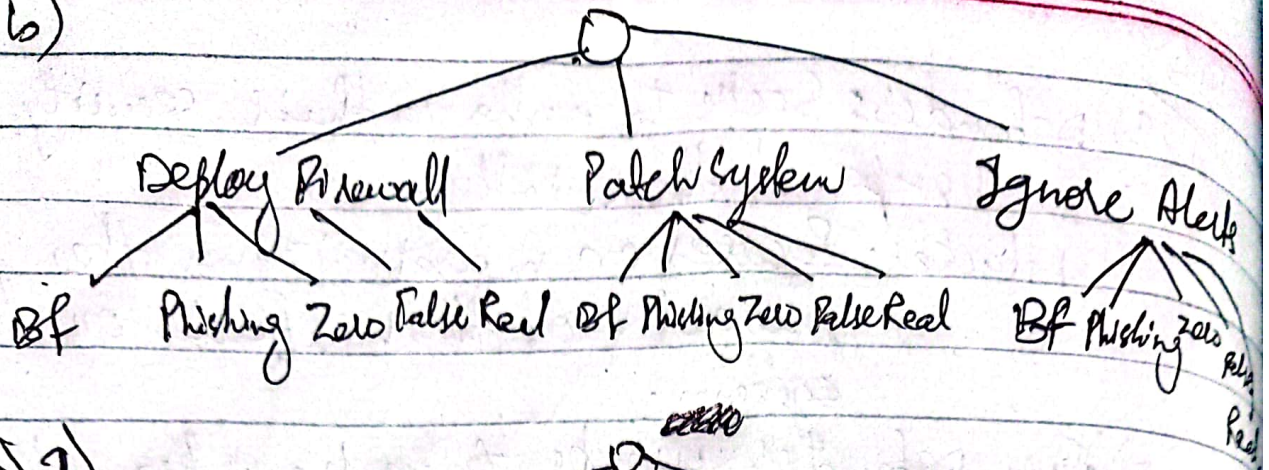 b)
Deploy Firewall Patch System Ignore Alerts
Bf Phishing Zero False Real Bf Phishing Zero False Real Bf Phishing Zero False
Real